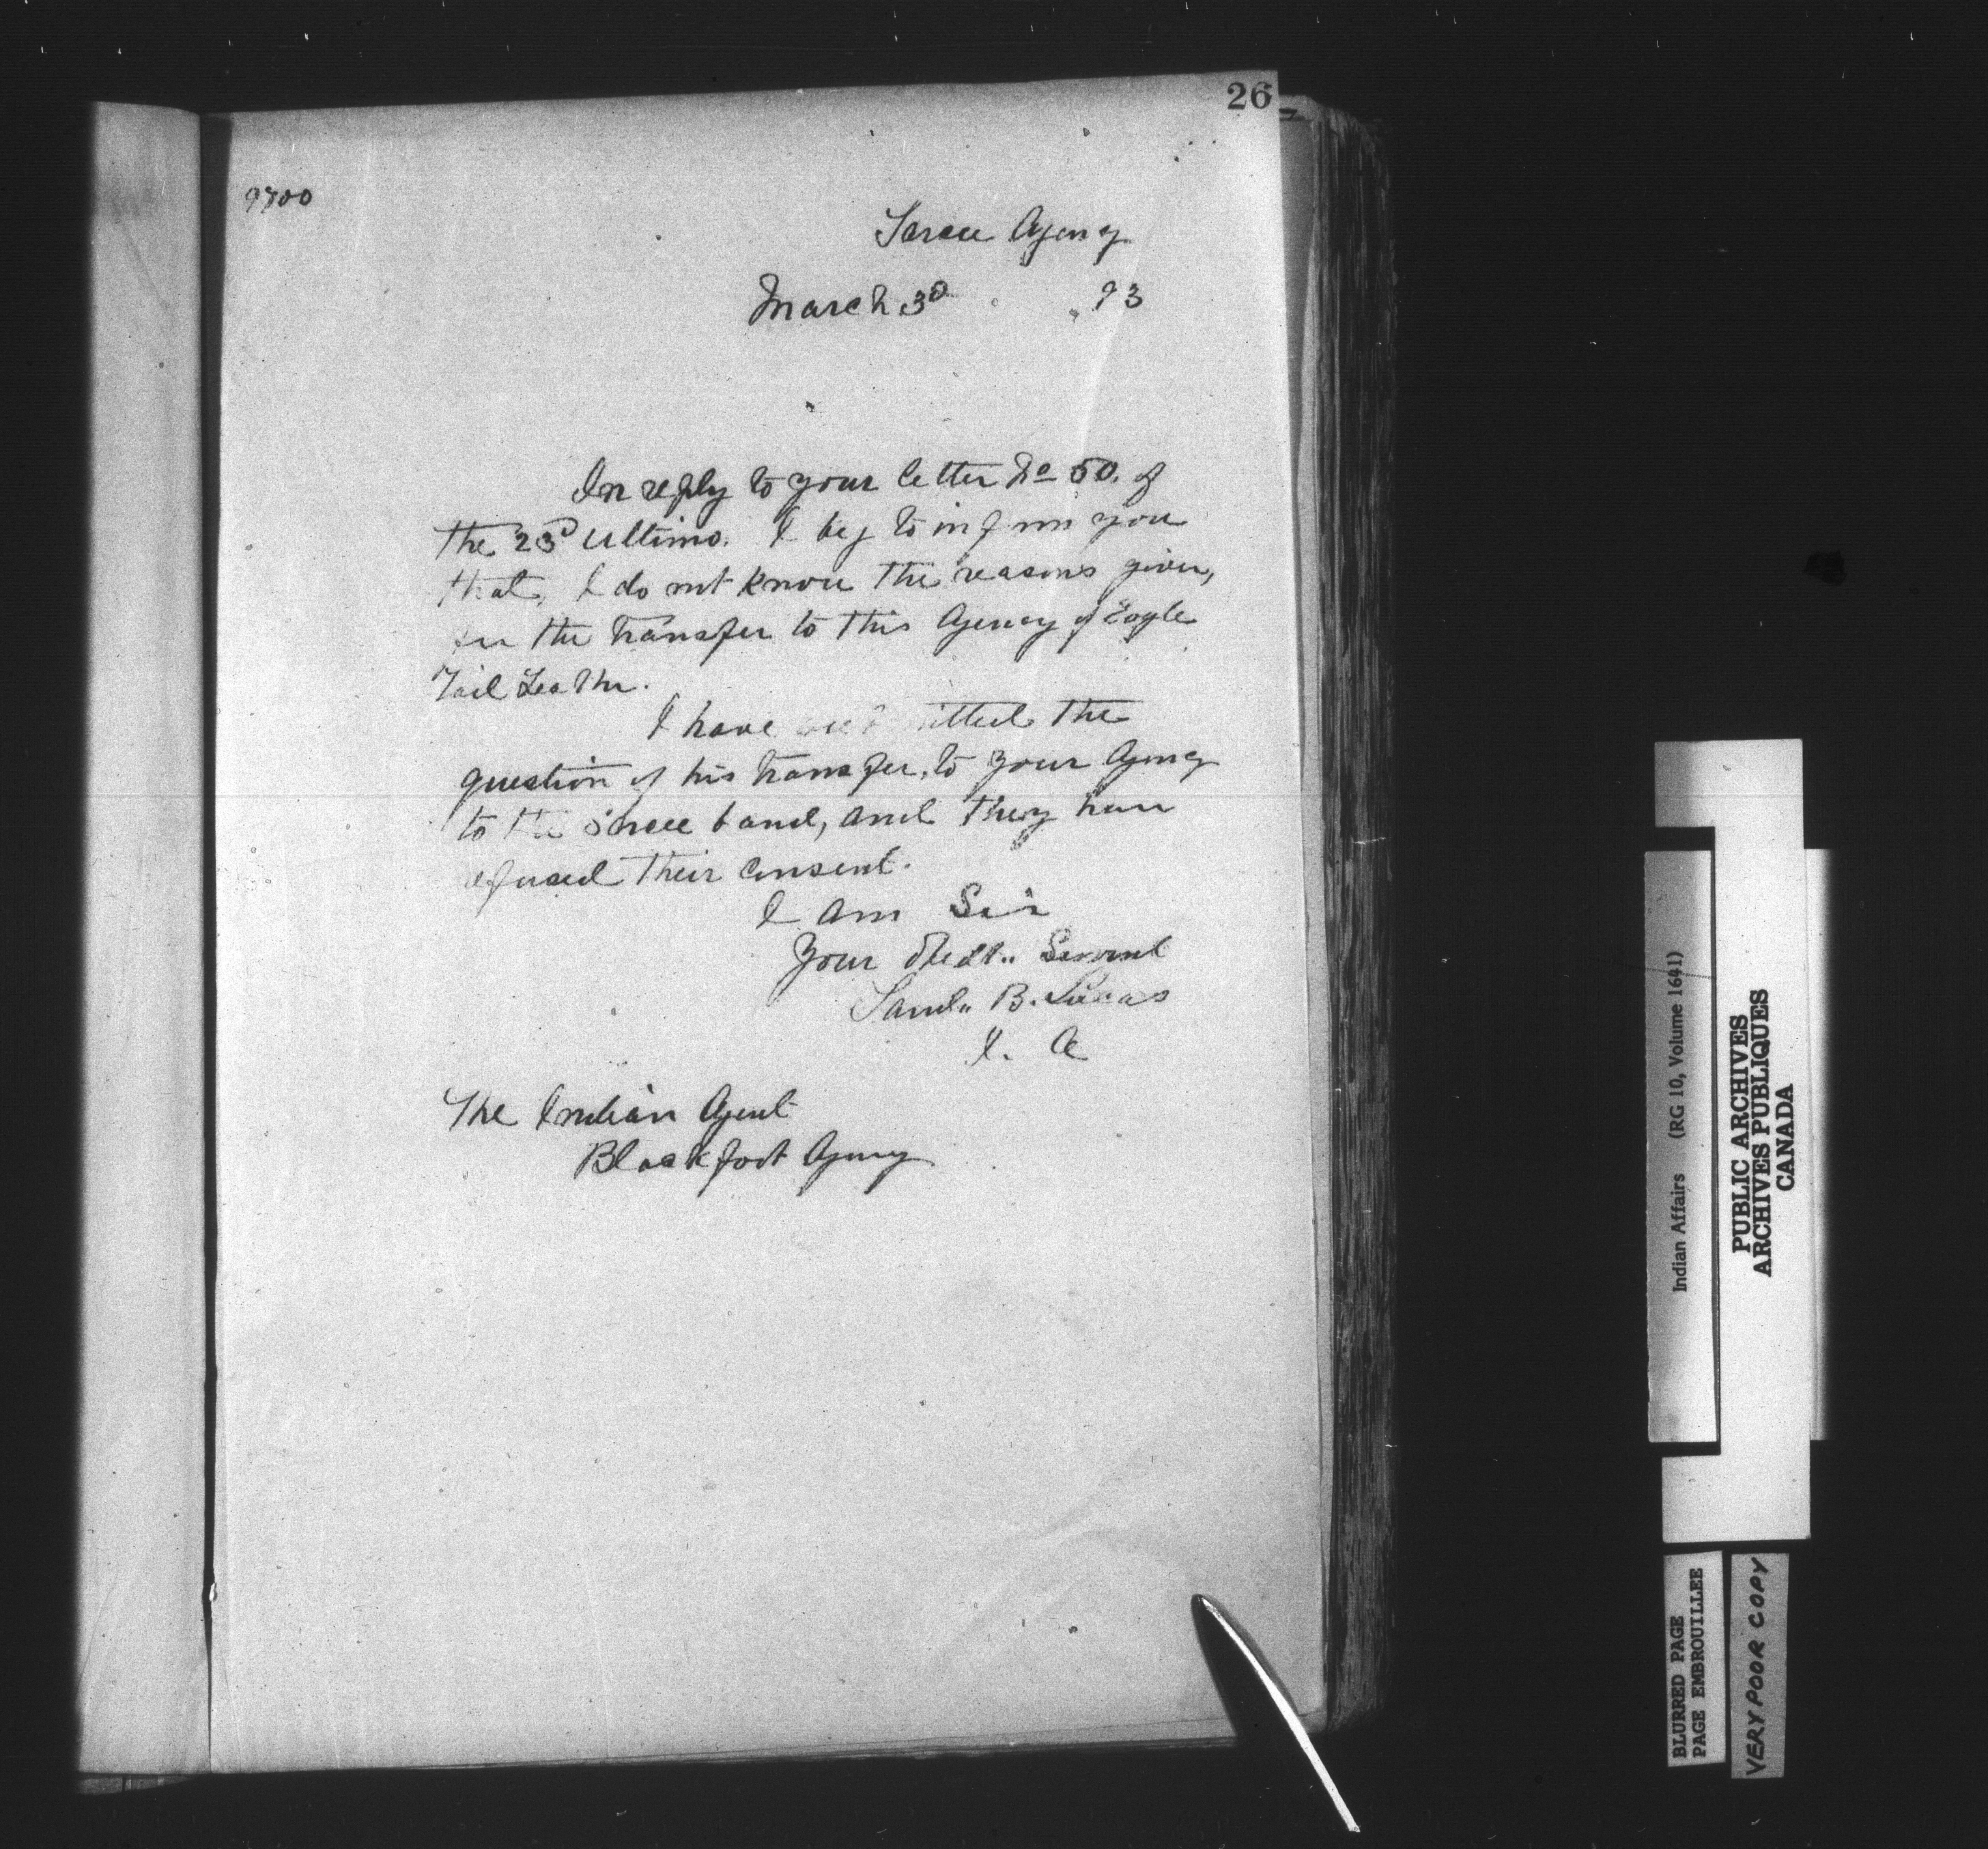 26
9800
Sarcee Agency
March 3d 93
In reply to your letter No 50. of
the 23d Ultimo. I beg to inform you
that, I do not know the reasons given,
for the transfer to this Agency of Eagle
Tail Feather.
I have submitted the
question of his transfer, to your Agency
to the Sarcee band, and they have
refused their consent.
I am Sir
Your Obedt.. Servant
Saml.. B. Lucas
I. A
The Indian Agent
Blackfoot Agency
Indian Affairs (RG 10, Volume 1641)
PUBLIC ARCHIVES
ARCHIVES PUBLIQUES
CANADA
BLURRED PAGE
PAGE EMBROUILLEE
VERY POOR COPY